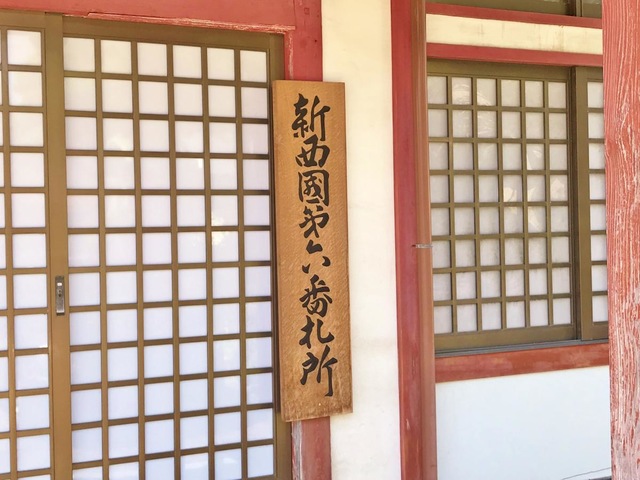 新西國第六番札所